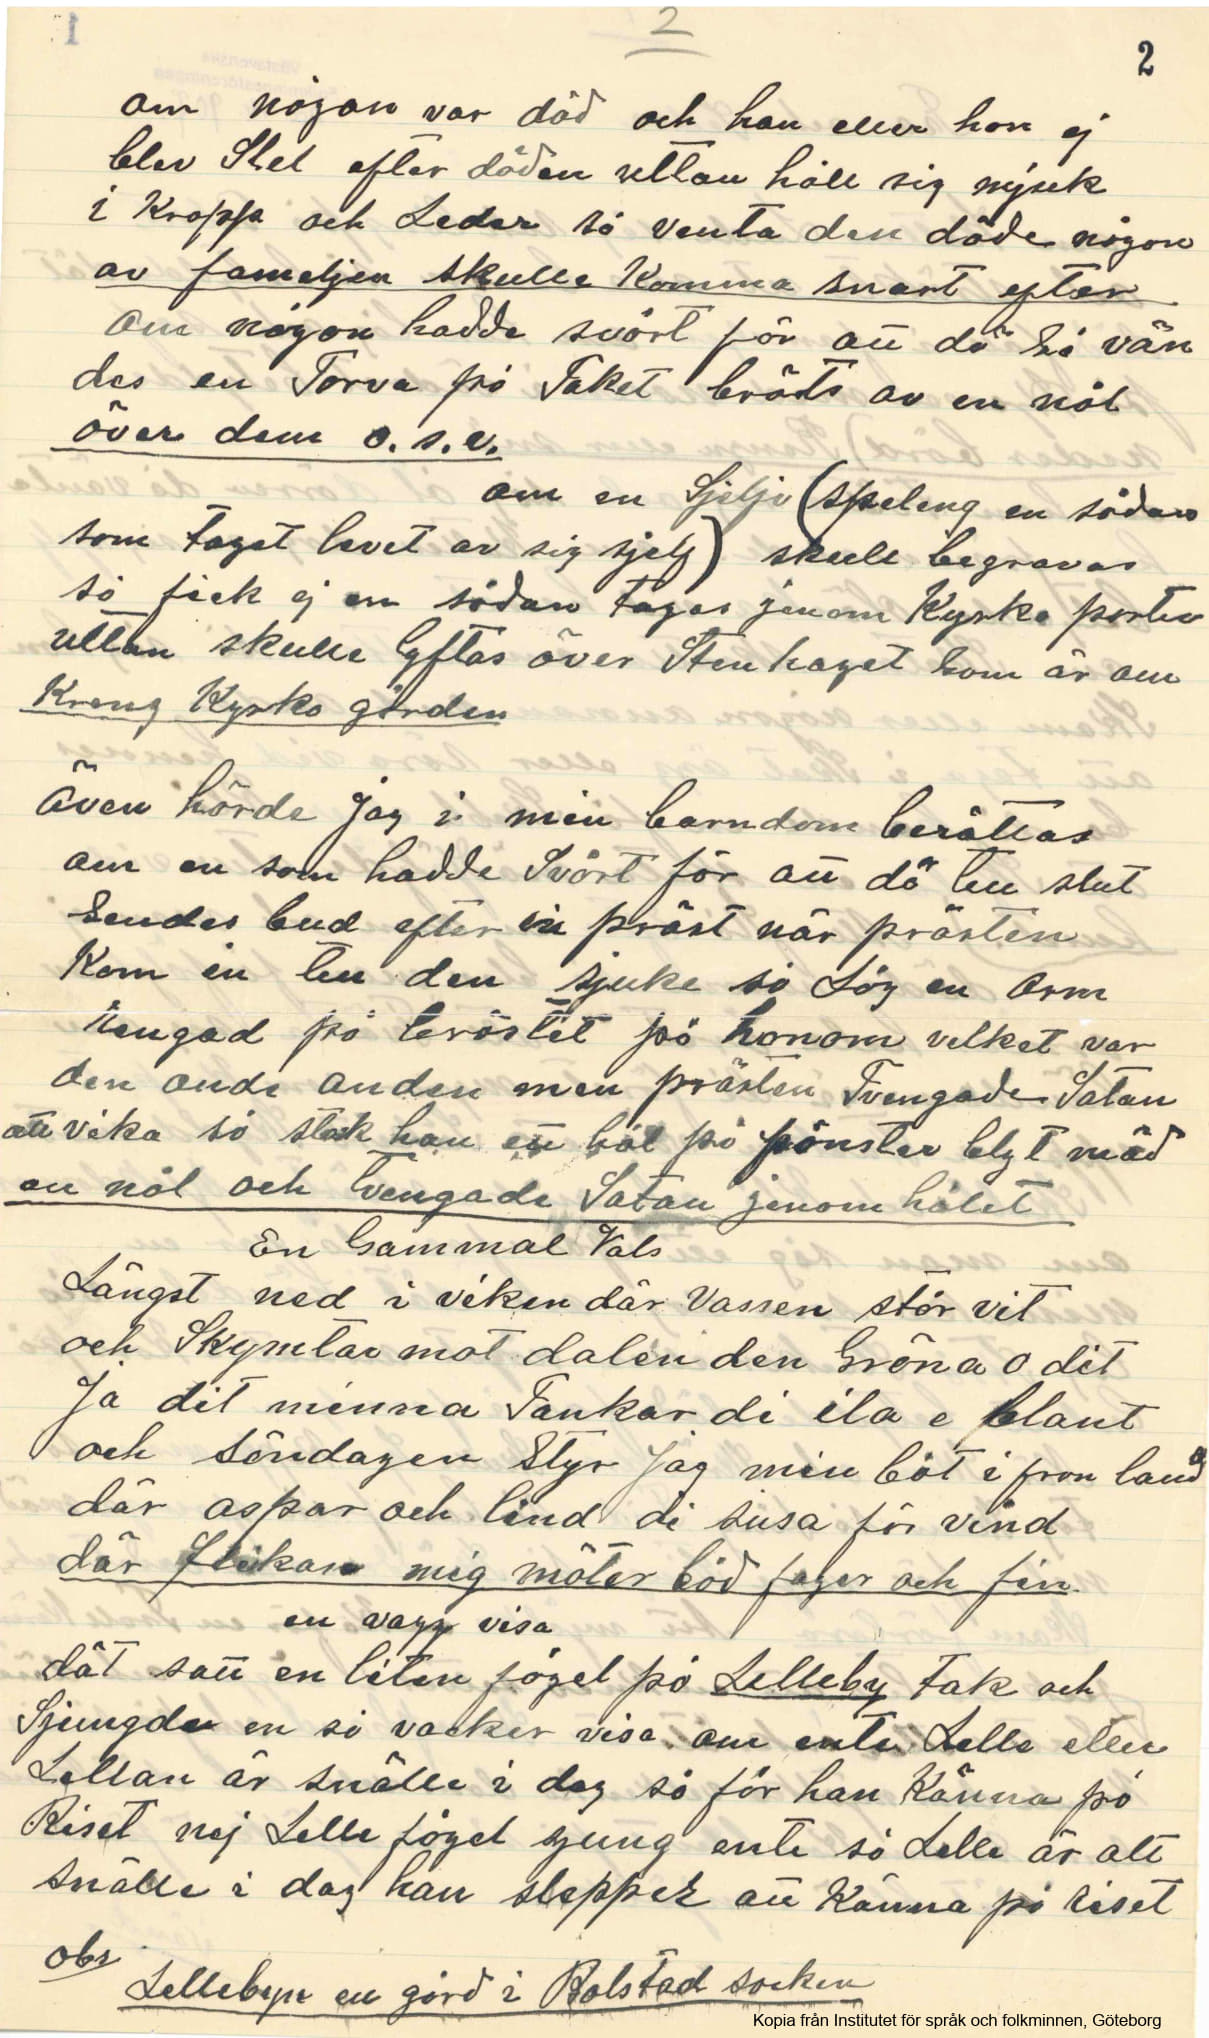 2
2
om någon var död och han eller hon ej
blev Stel efter döden uttan håll sig mjuk
i Kropp och Leder så venta den döde någon
av fameljen skulle Komma snart efter
om någon hadde svårt för att dö så vän
des en Torva på Taket bröts av en nål
över dem o.s.v.
om en Sjelv (speleng en sådan
som taget livet av sig sjelf) skull begravas
så fick ej en sådan tages jenom Kyrko porten
uttan skulle lyftas över Stenhaget som är om
Kreng Kyrko gården
Även hörde jag i min barndom berättas
om en som hadde Svårt för att dö till slut
Sendes bud efter en präst när prästen
Kom in till den sjuke så Låg en orm
rengad på bröstet på honom velket var
den onde anden men prästen Tvengade Satan
att vika så stak han ett hål på fönster blyt mäd
en nål och tvengade Satan jenom hålet
En Gammal Vals
Längst ned i viken där Vassen står vit
och Skymtar mot dalen den Gröna o dit
Ja dit minna Tankar di ila e blant
och söndagen Styr Jag min båt i fron land
där aspar och lind di susa för vind
där flickan mig möter böd fager och fin
en vagg visa
dät satt en liten fågel på Lelleby tak och
Sjungde en så vacker visa om ente Lelle eller
Lellan är snälle i dag så för han Känna på
Riset nej Lelle fågel sjung ente så Lelle är allt
snälle i dag han slepper att Känna på riset
obs
Lellebyn en gård i Bolstad socken
Kopia från Institutet för språk och folkminnen, Göteborg